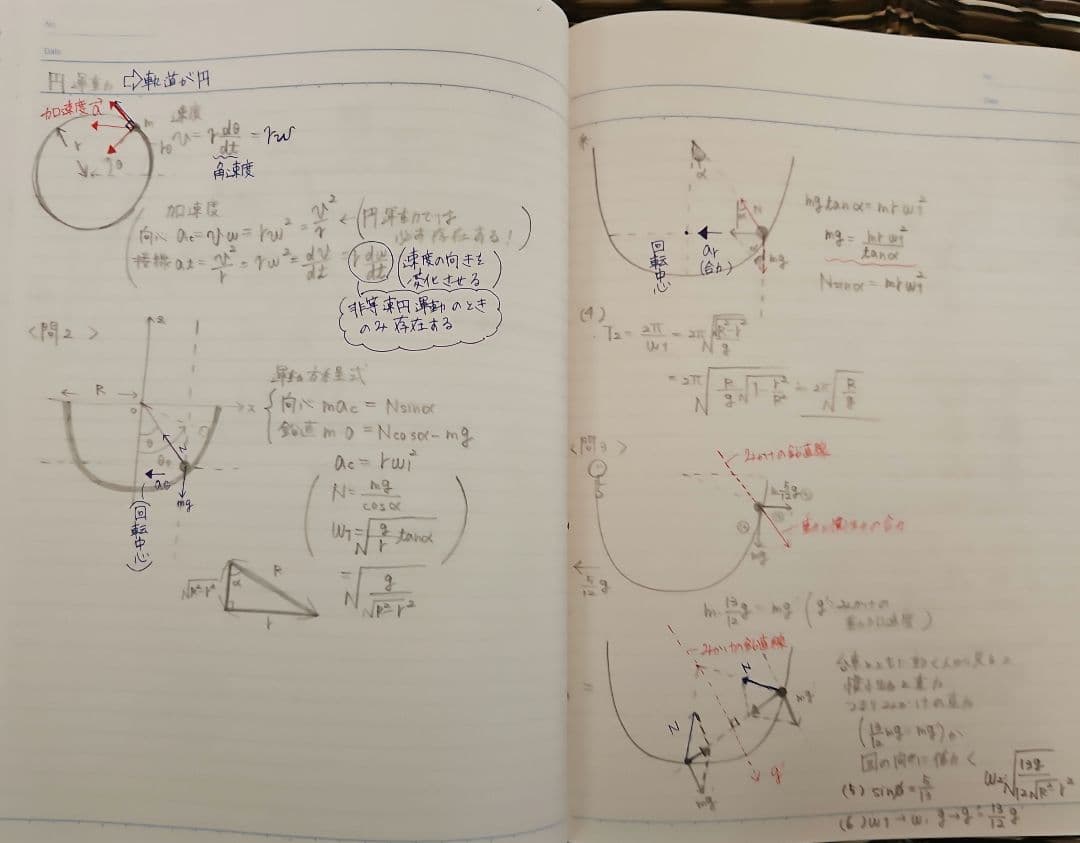 No.
Date
円運動 ⇨軌道が円
加速度 a
m
速度
v = r dθ/dt = rω
rθ
r
角速度
加速度
向心 ac = vω = rω² = v²/r ← (円運動では
必ず存在ある!)
接線 at = v²/r = rω² = dv/dt = r dω/dt
(速度の向きを
変化させる)
非等速円運動のとき
のみ存在する
<問2>
z
R
x
o
θ
θ0
N
ac
mg
(回転中心)
運動方程式
向心 mac = Nsinα
鉛直 m0 = Ncosα-mg
ac = rω1²
N = mg/cosα
ω1 = √(g/r tanα)
= √(g/√(R²-r²))
√(R²-r²)
α
R
r
Date
*
α
N
mg
ar
(合力)
回転中心
mg tanα = mrω1²
mg = mrω1²/tanα
Nsinα = mrω1²
(4)
T2 = 2π/ω1 = 2π√(√(R²-r²)/g)
= 2π√(R/g √(1-r²/R²)) = 2π√(R/g)
<問3>
みかけの鉛直線
m 5/12 g
mg
5/12 g
m・13/12 g = mg' (g':みかけの
重力加速度)
みかけの鉛直線
N
mg
N
mg
g'
=
台車とともに動く人から見ると
慣性力と重力
つまりみかけの重力
(13/12 mg = mg')が
図の向きに働く
(5) sinφ = 5/13
ω2 = √(13g/12√(R²-r²))
(6) ω1→ω, g→g' = 13/12 g